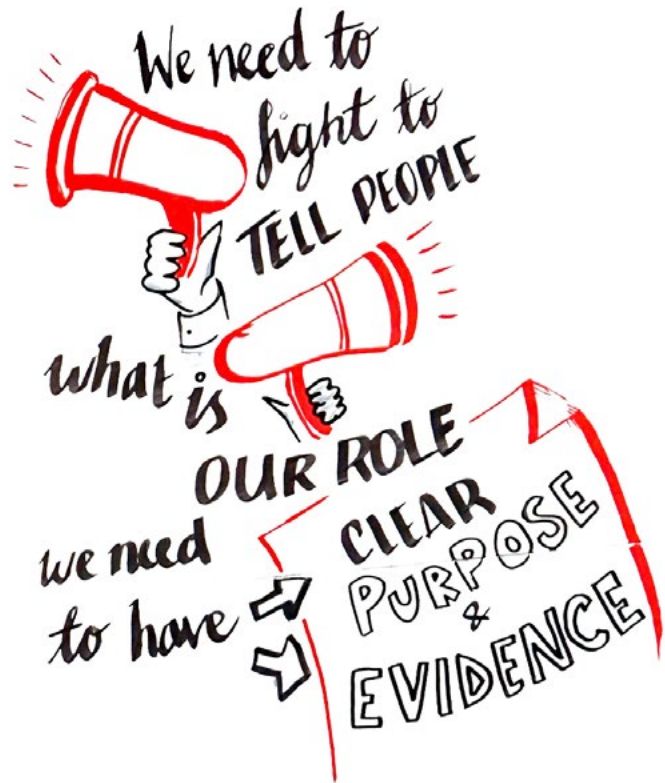 We need to
fight to
TELL PEOPLE
what is
OUR ROLE
we need
to have
CLEAR
PURPOSE
&
EVIDENCE